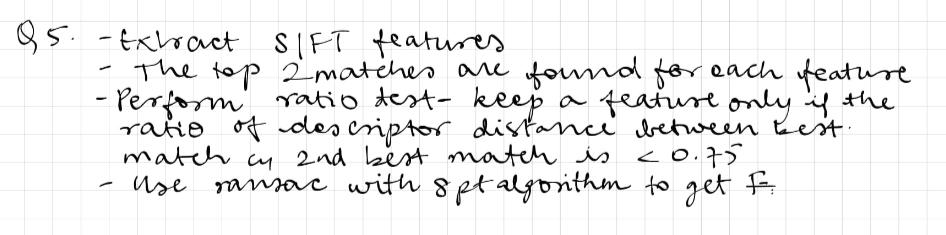 Q5. - Extract SIFT features
- The top 2 matches are found for each feature
- Perform ratio test - keep a feature only if the
ratio of descriptor distance between best
match & 2nd best match is < 0.75
- Use ransac with 8pt algorithm to get F.